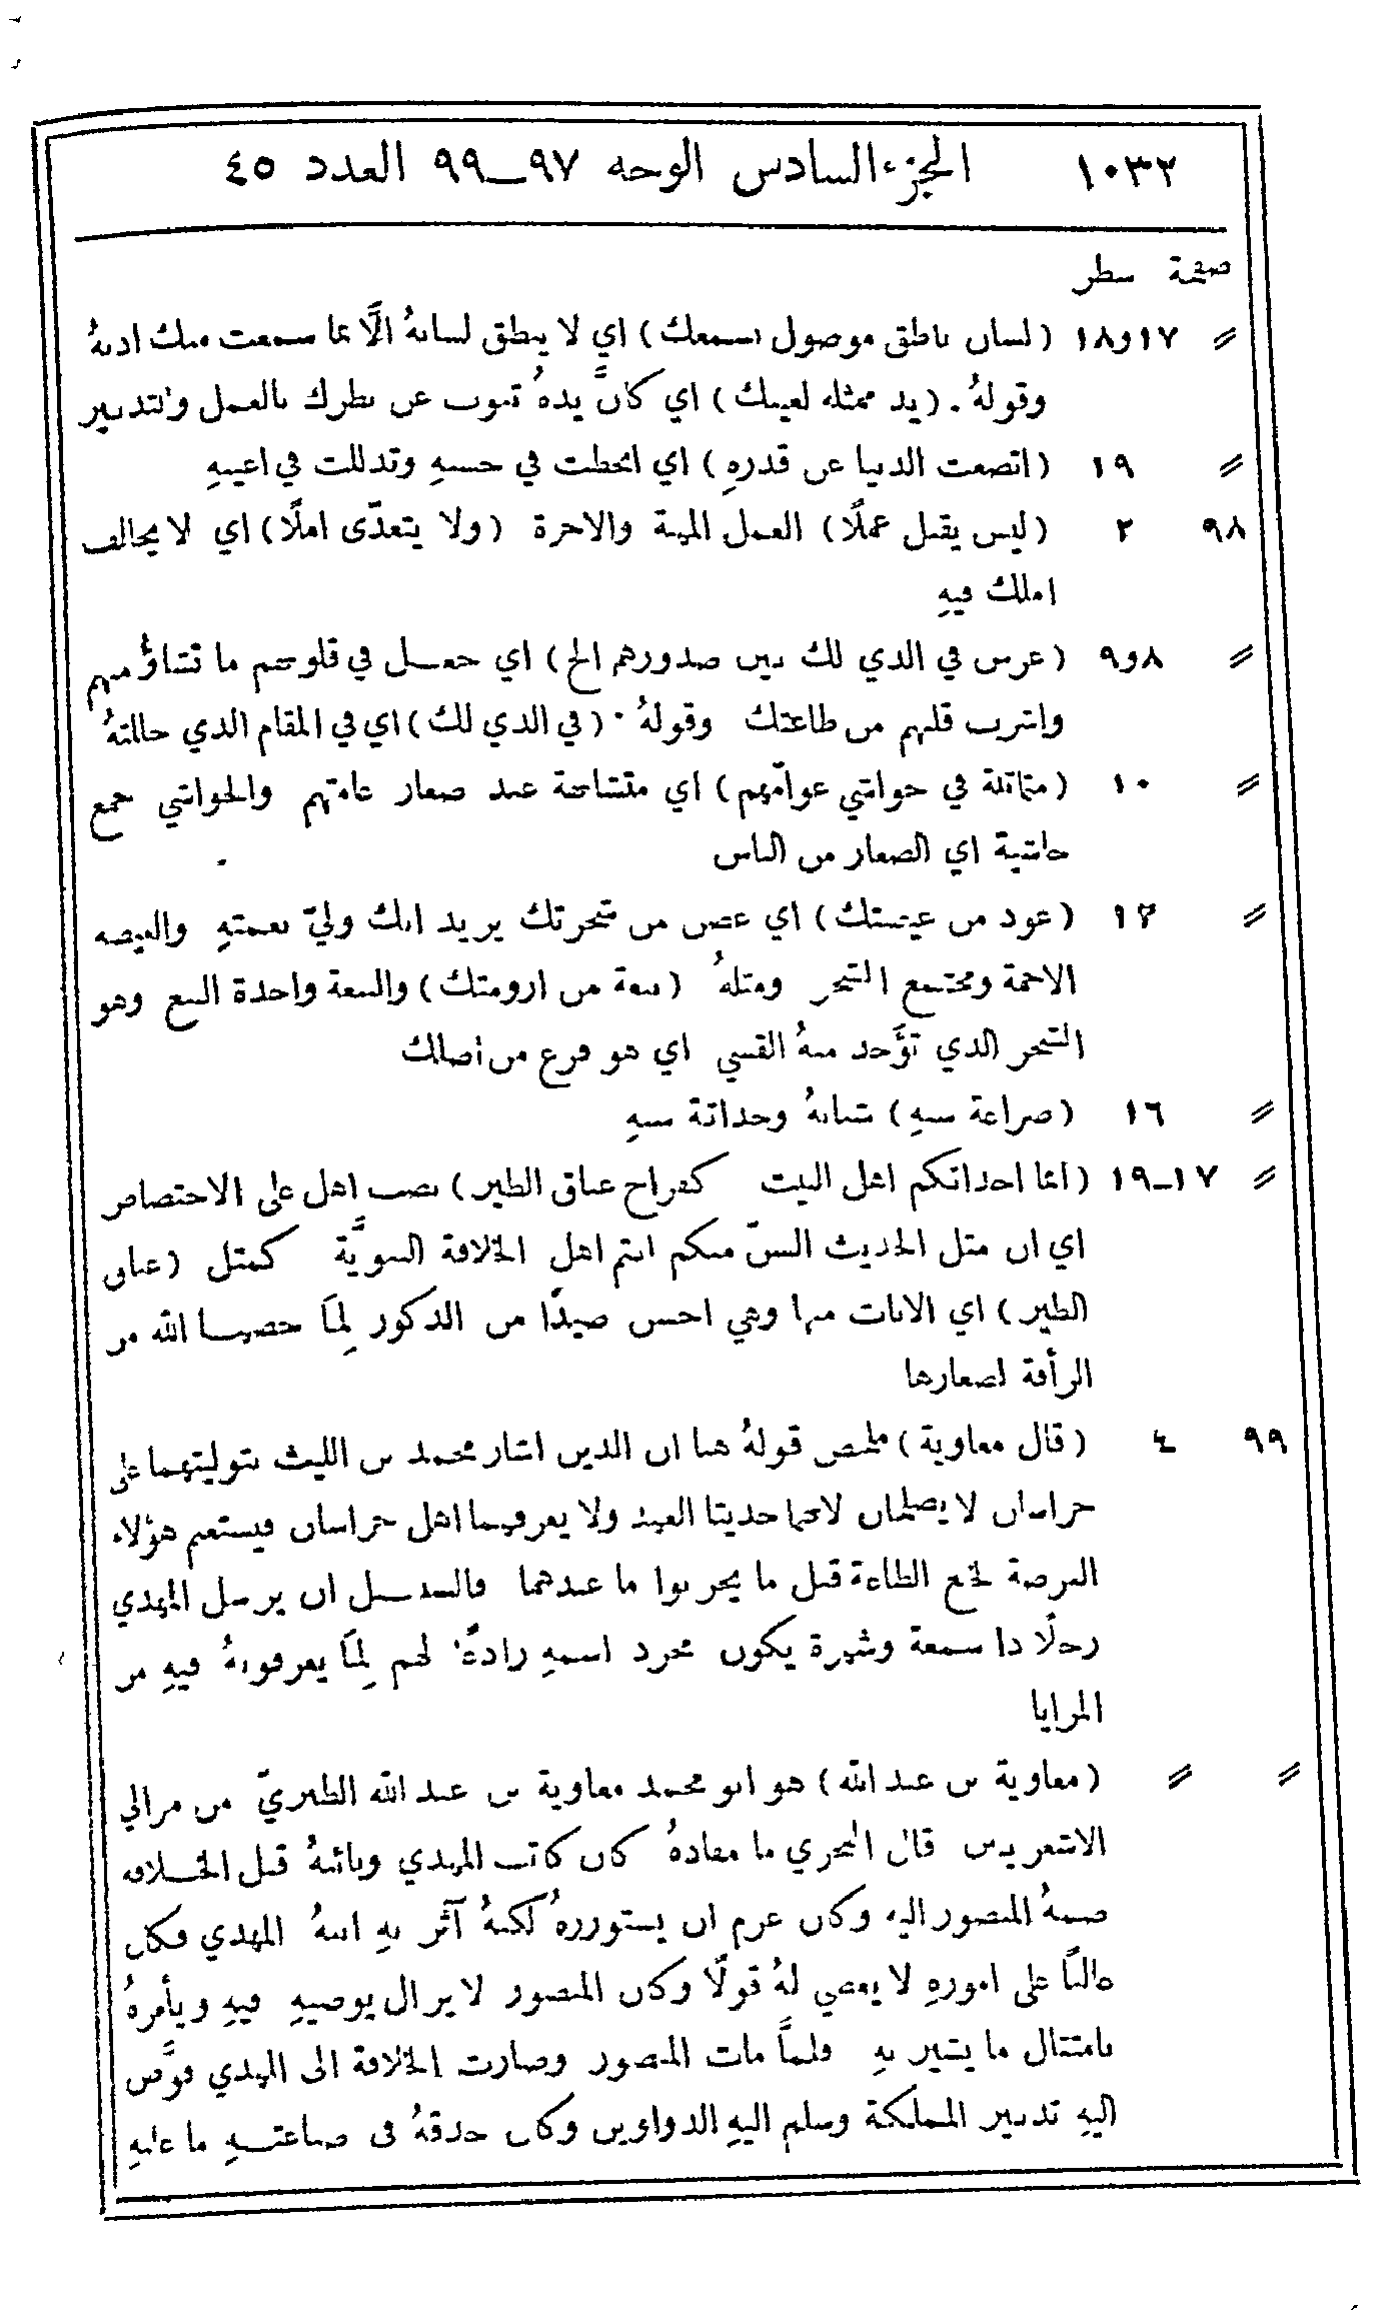 ١٠٣٢ الجزء السادس الوجه ٩٧–٩٩ العدد ٤٥
صفحة سطر
〃 ١٧و١٨ (لسان ناطق موصول بسمعك) اي لا ينطق لسانهُ الَّا بما سمعت منك اذنهُ
وقولهُ. (يد ممثلة لعينك) اي كانَّ يدهُ تنوب عن نظرك بالعمل والتدبير
〃 ١٩ (اتضعت الدنيا عن قدرهِ) اي انحطت في جنبهِ وتذللت في اعينهِ
٩٨ ٢ (ليس يقبل عملًا) العمل المهنة والاجرة (ولا يتعدّى املًا) اي لا يخالف
املك فيهِ
〃 ٨و٩ (غرس في الذي لك بين صدورهم الخ) اي جعل في قلوبهم ما تشاؤُ منهم
واشرب قلبهم من طاعتك وقولهُ. (في الذي لك) اي في المقام الذي
〃 ١٠ (متماثلة في حواشي عوامّهم) اي متشابهة عند صغار عامتهم والحواشي جمع
حاشية اي الصغار من الناس
〃 ١٣ (عود من غيضتك) اي غصن من شجرتك يريد انك وليّ نعمتهِ والغيضة
الاجمة ومجتمع الشجر ومثلهُ (نبعة من ارومتك) والنبعة واحدة النبع وهو
الشجر الذي تؤَخذ منهُ القسي اي هو فرع من اصلك
〃 ١٦ (ضراعة سنهِ) شبابهُ وحداثة سنهِ
〃 ١٧–١٩ (انما احداثكم اهل البيت كفراخ عتاق الطير) نصب اهل على الاختصاص
اي ان مثل الحديث السنّ منكم انتم اهل الخلافة النبويَّة كمثل (عتاق
الطير) اي الاناث منها وهي احسن صيدًا من الذكور لِمَا خصها الله من
الرأفة لصغارها
٩٩ ٤ (قال معاوية) ملخص قولهُ هنا ان الذين اشار محمد بن الليث بتوليتهما على
خراسان لا يصلحان لانهما حديثا العهد ولا يعرفهما اهل خراسان فيستغنم هؤلاء
الفرصة لخلع الطاعة قبل ما يجربوا ما عندهما فالسبيل ان يرسل المهدي
رجلًا ذا سمعة وشهرة يكون مجرد اسمهِ رادعًا لهم لِمَا يعرفونهُ فيهِ من
المزايا
〃 〃 (معاوية بن عبد الله) هو ابو محمد معاوية بن عبد الله الطبريّ من موالي
الاشعريين قال الفخري ما مفادهُ كان كاتب المهدي ونائبهُ قبل الخلافة
ضمهُ المنصور اليهِ وكان عزم ان يستوزرهُ لكنهُ آثر بهِ ابنهُ المهدي فكان
غالبًا على امورهِ لا يعصي لهُ قولًا وكان المنصور لا يزال يوصيهِ فيهِ ويأمرهُ
بامتثال ما يشير بهِ فلمَّا مات المنصور وصارت الخلافة الى المهدي فوَّض
اليهِ تدبير المملكة وسلم اليهِ الدواوين وكان حذقهُ في صناعتهِ ما عليهِ